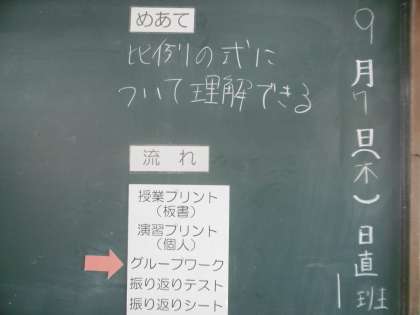 9月7日(木)日直
1班
めあて
比例の式に
ついて理解できる
流れ
授業プリント
(板書)
演習プリント
(個人)
グループワーク
振り返りテスト
振り返りシート